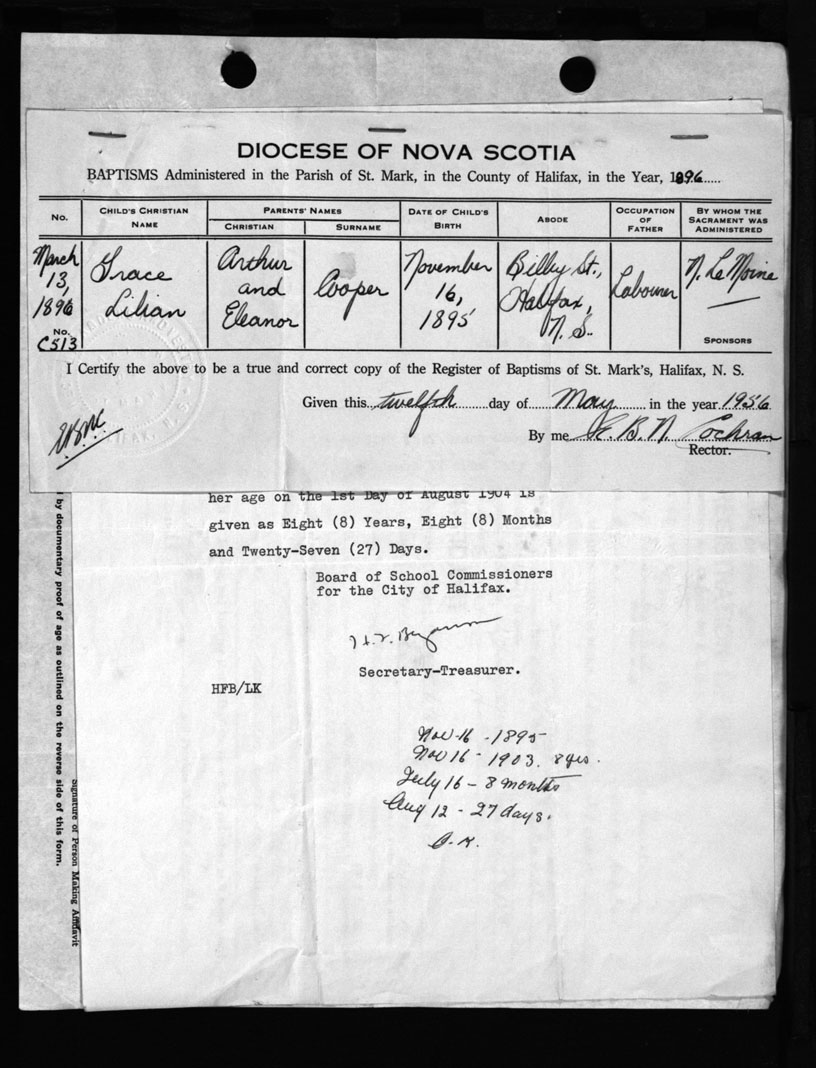 DIOCESE OF NOVA SCOTIA
BAPTISMS Administered in the Parish of St. Mark, in the County of Halifax, in the Year, 1896.....
No.
CHILD'S CHRISTIAN NAME
PARENTS' NAMES
CHRISTIAN
SURNAME
DATE OF CHILD'S BIRTH
ABODE
OCCUPATION OF FATHER
BY WHOM THE SACRAMENT WAS ADMINISTERED
March 13, 1896
No. C513
Grace Lilian
Arthur and Eleanor
Cooper
November 16, 1895
Bilby St., Halifax, N.S.
Labourer
N. LeMoine
SPONSORS
I Certify the above to be a true and correct copy of the Register of Baptisms of St. Mark's, Halifax, N. S.
Given this twelfth day of May in the year 1956
By me B. N. Cochran
Rector.
her age on the 1st Day of August 1904 is
given as Eight (8) Years, Eight (8) Months
and Twenty-Seven (27) Days.
Board of School Commissioners
for the City of Halifax.
Secretary-Treasurer.
HFB/LK
Nov 16 - 1895
Nov 16 - 1903. 8 yrs.
July 16 - 8 months
Aug 12 - 27 days.
O.K.
by documentary proof of age as outlined on the reverse side of this form.
Signature of Person Making Affidavit